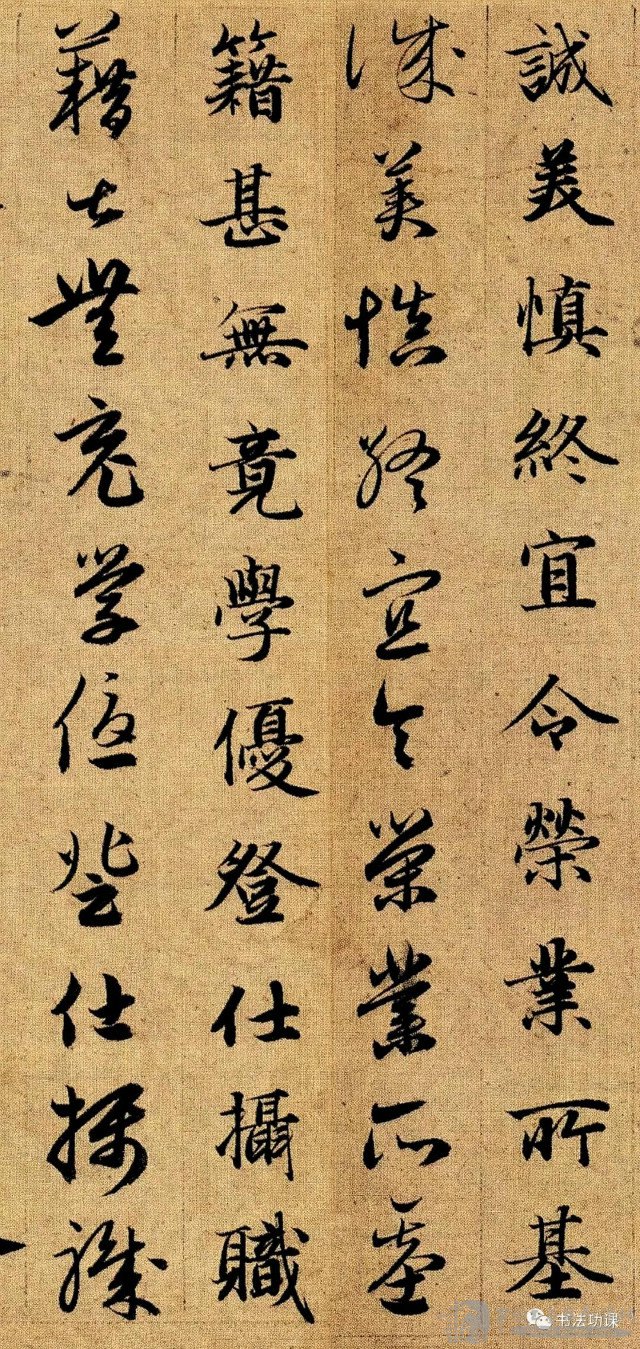 誠美慎終宜令榮業所基
誠美慎終宜令榮業所基
籍甚無竟學優登仕攝職
藉甚無竟學優登仕攝職
书法功课